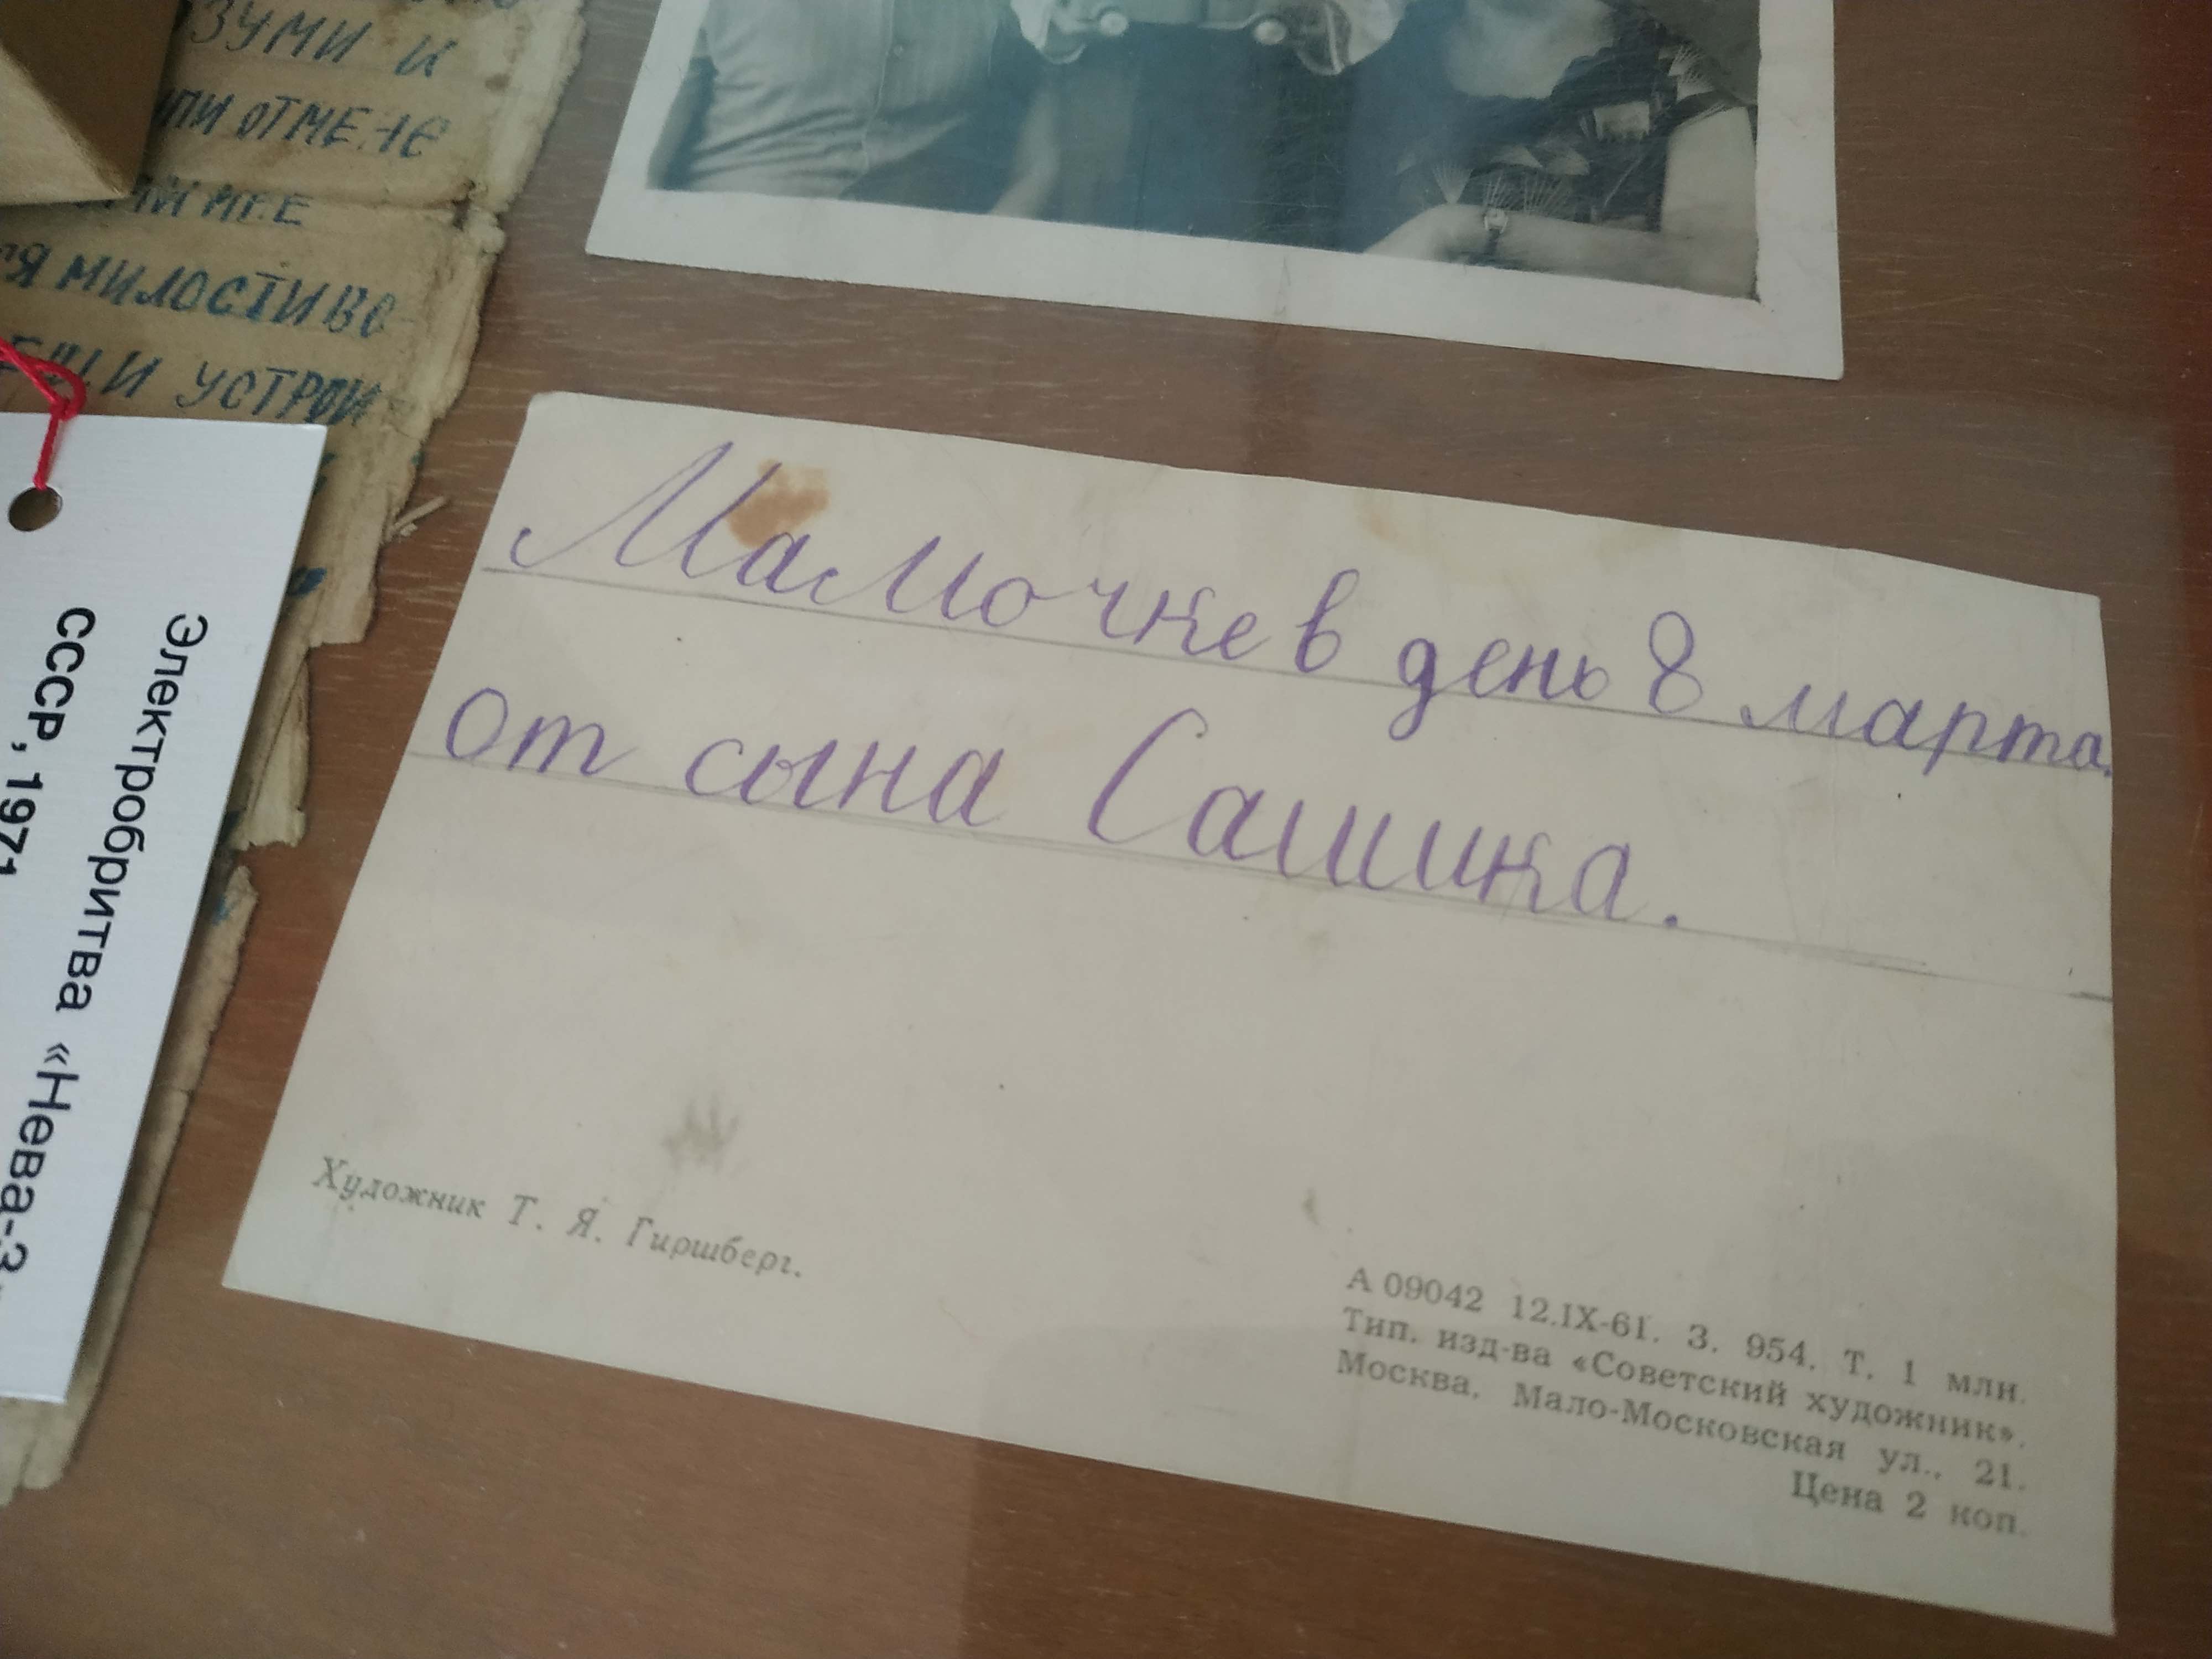 ЗУМИ И
ИЛИ ОТМЕ
МИЛОСТИВО-
УСТРОИ
Электробритва «Нева-3
СССР, 1971
Мамочке в день 8 марта.
от сына Сашика.
Художник Т. Я. Гиршберг.
А 09042 12.IX-61. З. 954. Т. 1 млн.
Тип. изд-ва «Советский художник».
Москва. Мало-Московская ул., 21.
Цена 2 коп.